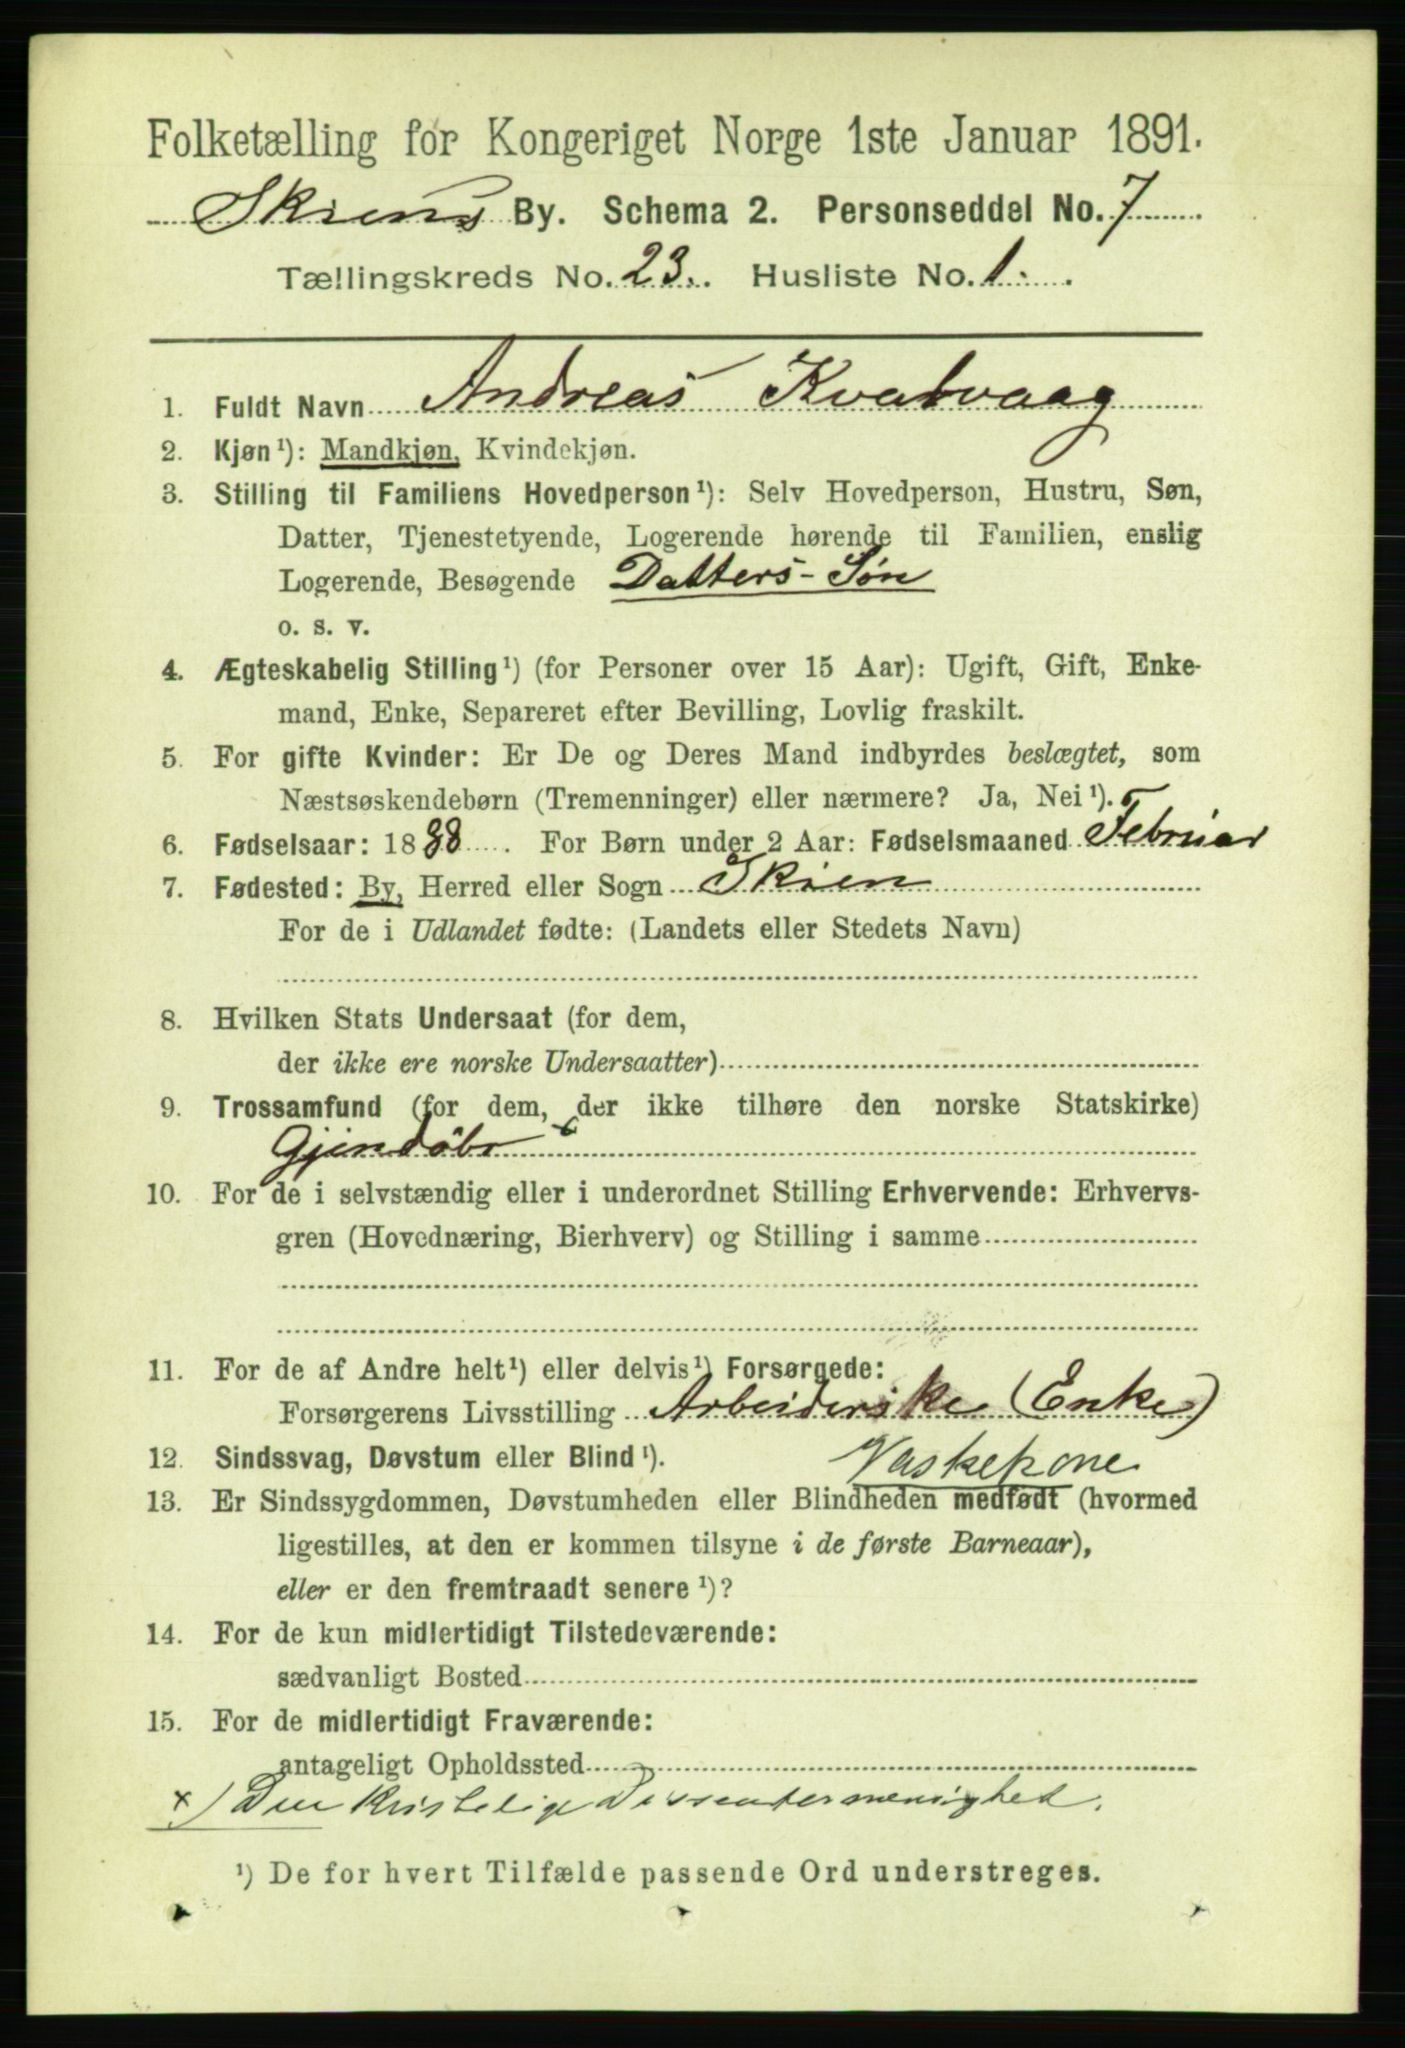 Folketælling for Kongeriget Norge 1ste Januar 1891.
Skiens By. Schema 2. Personseddel No. 7
Tællingskreds No. 23. Husliste No. 1.
1. Fuldt Navn Andreas Kvalvaag
2. Kjøn¹): Mandkjøn, Kvindekjøn.
3. Stilling til Familiens Hovedperson¹): Selv Hovedperson, Hustru, Søn,
Datter, Tjenestetyende, Logerende hørende til Familien, enslig
Logerende, Besøgende Datters-Søn
o. s. v.
4. Ægteskabelig Stilling¹) (for Personer over 15 Aar): Ugift, Gift, Enke-
mand, Enke, Separeret efter Bevilling, Lovlig fraskilt.
5. For gifte Kvinder: Er De og Deres Mand indbyrdes beslægtet, som
Næstsøskendebørn (Tremenninger) eller nærmere? Ja, Nei¹).
6. Fødselsaar: 1888. For Børn under 2 Aar: Fødselsmaaned Februar
7. Fødested: By, Herred eller Sogn Skien
For de i Udlandet fødte: (Landets eller Stedets Navn)
8. Hvilken Stats Undersaat (for dem,
der ikke ere norske Undersaatter)
9. Trossamfund (for dem, der ikke tilhøre den norske Statskirke)
Gjendøbr x
10. For de i selvstændig eller i underordnet Stilling Erhvervende: Erhvervs-
gren (Hovednæring, Bierhverv) og Stilling i samme
11. For de af Andre helt¹) eller delvis¹) Forsørgede:
Forsørgerens Livsstilling Arbeiderske (Enke)
Vaskekone
12. Sindssvag, Døvstum eller Blind¹).
13. Er Sindssygdommen, Døvstumheden eller Blindheden medfødt (hvormed
ligestilles, at den er kommen tilsyne i de første Barneaar),
eller er den fremtraadt senere¹)?
14. For de kun midlertidigt Tilstedeværende:
sædvanligt Bosted
15. For de midlertidigt Fraværende:
antageligt Opholdssted
x) Den kristelige Dissentermenighed.
¹) De for hvert Tilfælde passende Ord understreges.